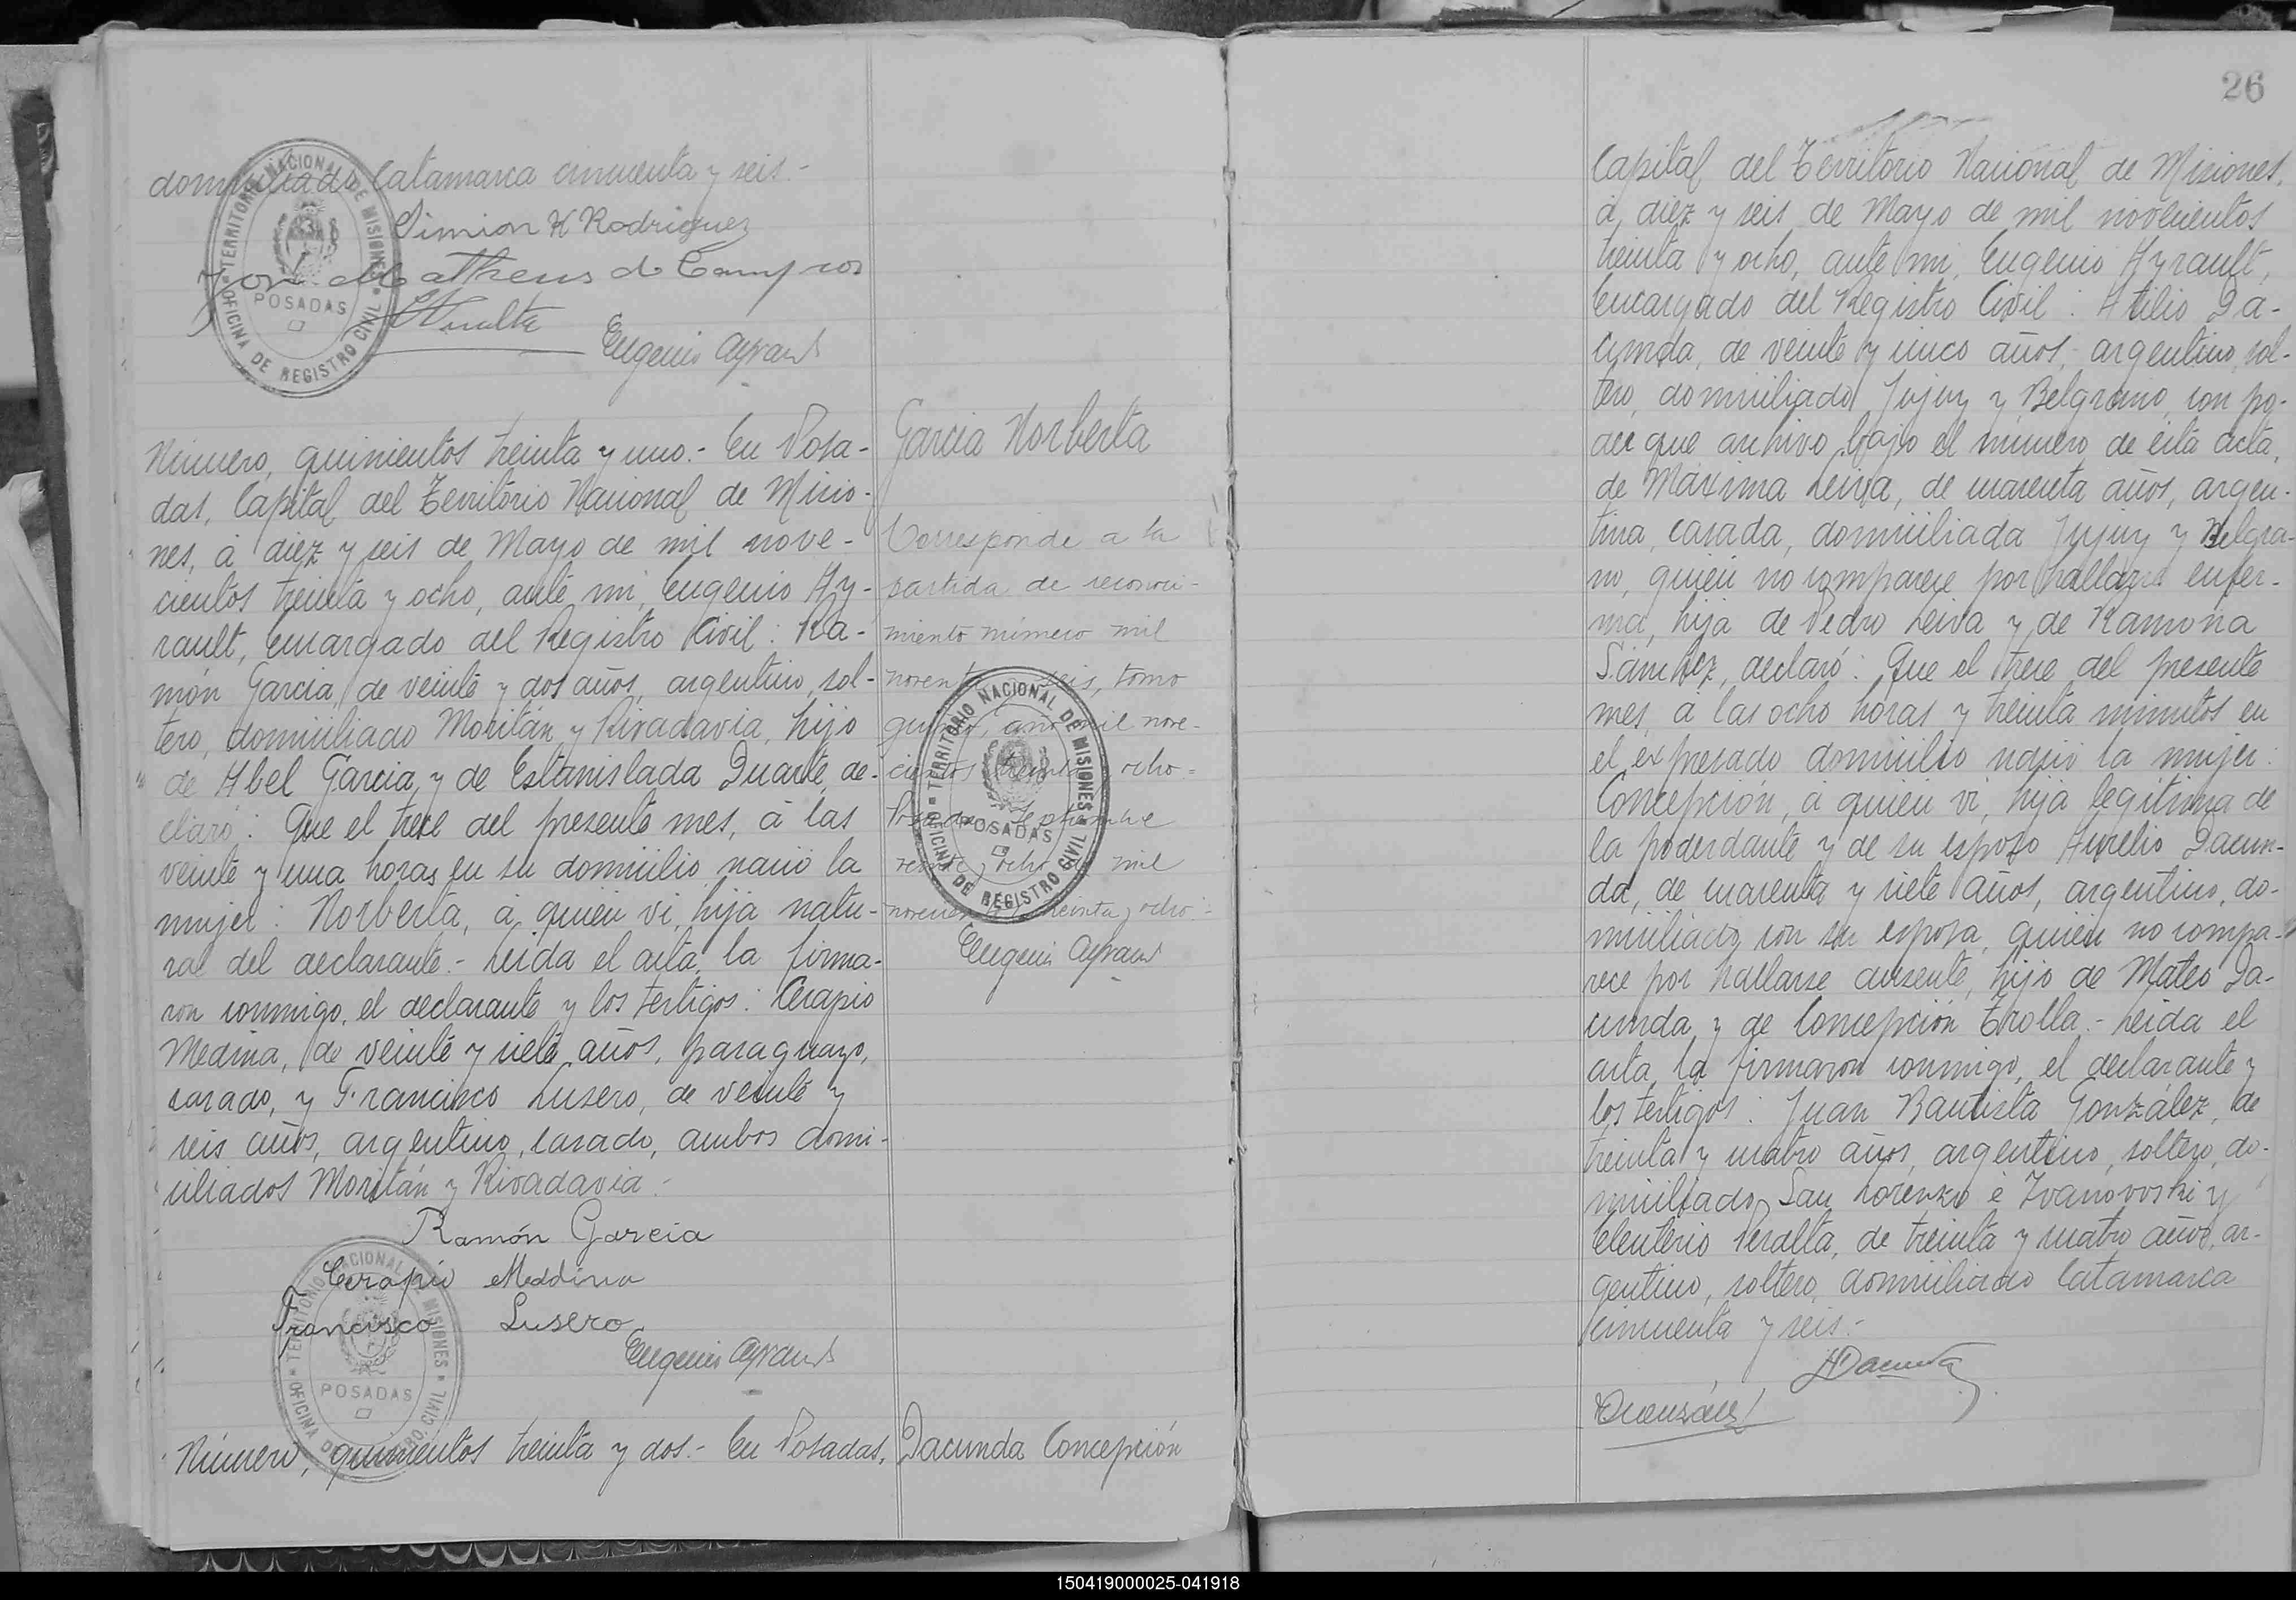 domiciliado Catamarca cincuenta y seis.-
Simion H Rodriguez
José Matheus de Campos
EPeralta
Eugenio Ayrault
TERRITORIO NACIONAL DE MISIONES
POSADAS
OFICINA DE REGISTRO CIVIL
Número, quinientos treinta y uno.- En Posa-
das, Capital del Territorio Nacional de Misio-
nes, á diez y seis de Mayo de mil nove-
cientos treinta y ocho, ante mi, Eugenio Ay-
rault, Encargado del Registro Civil: Ra-
món Garcia, de veinte y dos años, argentino, sol-
tero, domiciliado Moritán y Rivadavia, hijo
de Abel Garcia, y de Estanislada Duarte, de-
claró: Que el trece del presente mes, á las
veinte y una horas en su domicilio nació la
mujer: Norberta, á quien vi, hija natu-
ral del declarante.- Leida el acta, la firma-
ron conmigo, el declarante y los testigos: Cerapio
Medina, de veinte y siete años, paraguayo,
casado, y Francisco Lusero, de veinte y
seis años, argentino, casado, ambos domi-
ciliados Moritán y Rivadavia.-
Ramón Garcia
Cerapio Meddina
Francisco Lusero
Eugenio Ayrault
TERRITORIO NACIONAL DE MISIONES
POSADAS
OFICINA DE REGISTRO CIVIL
Número, quinientos treinta y dos.- En Posadas,
Garcia Norberta
Corresponde a la
partida de reconoci-
miento número mil
noventa seis, tomo
año mil nove-
cientos treinta ocho-
Posadas, Septiembre
veinte y ocho mil
novecientos treinta y ocho.-
Eugenio Ayrault
TERRITORIO NACIONAL DE MISIONES
POSADAS
OFICINA DE REGISTRO CIVIL
Dacunda Concepción
26
Capital del Territorio Nacional de Misiones,
á diez y seis de Mayo de mil novecientos
treinta y ocho, ante mi, Eugenio Ayrault,
Encargado del Registro Civil: Atilio Da-
cunda, de veinte y cinco años, argentino, sol-
tero, domiciliado Jujuy y Belgrano, con po-
der que archivo bajo el número de esta acta,
de Máxima Leiva, de cuarenta años, argen-
tina, casada, domiciliada Jujuy y Belgra-
no, quien no comparece por hallarse enfer-
ma, hija de Pedro Leiva y de Ramona
Sánchez, declaró: Que el trece del presente
mes, á las ocho horas y treinta minutos en
el expresado domicilio nació la mujer:
Concepción, á quien vi, hija legitima de
la poderdante y de su esposo Aurelio Dacun-
da, de cuarenta y siete años, argentino, do-
miciliado con su esposa, quien no compa-
rece por hallarse ausente, hijo de Mateo Da-
cunda y de Concepción Trolla.- Leida el
acta, la firmaron conmigo, el declarante y
los testigos: Juan Bautista González, de
treinta y cuatro años, argentino, soltero, do-
miciliado San Lorenzo é Ivanovoski y
Eleuterio Peralta, de treinta y cuatro años, ar-
gentino, soltero, domiciliado Catamarca
cincuenta y seis.-
ADacunda
150419000025-041918